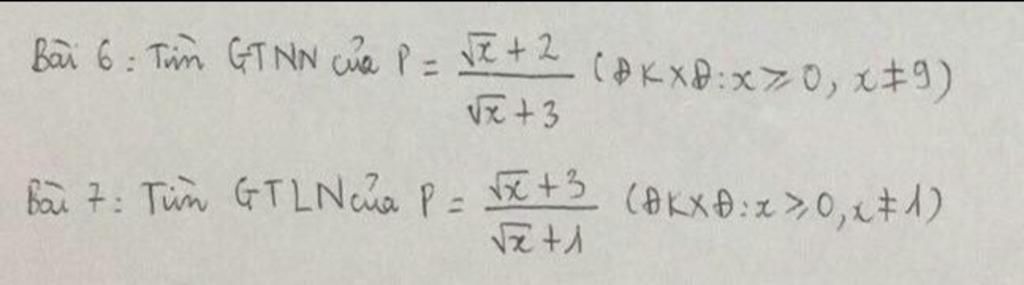 Bài 6: Tìm GTNN của P = (√x + 2)/(√x + 3) (ĐKXĐ: x ≥ 0, x ≠ 9)
Bài 7: Tìm GTLN của P = (√x + 3)/(√x + 1) (ĐKXĐ: x ≥ 0, x ≠ 1)